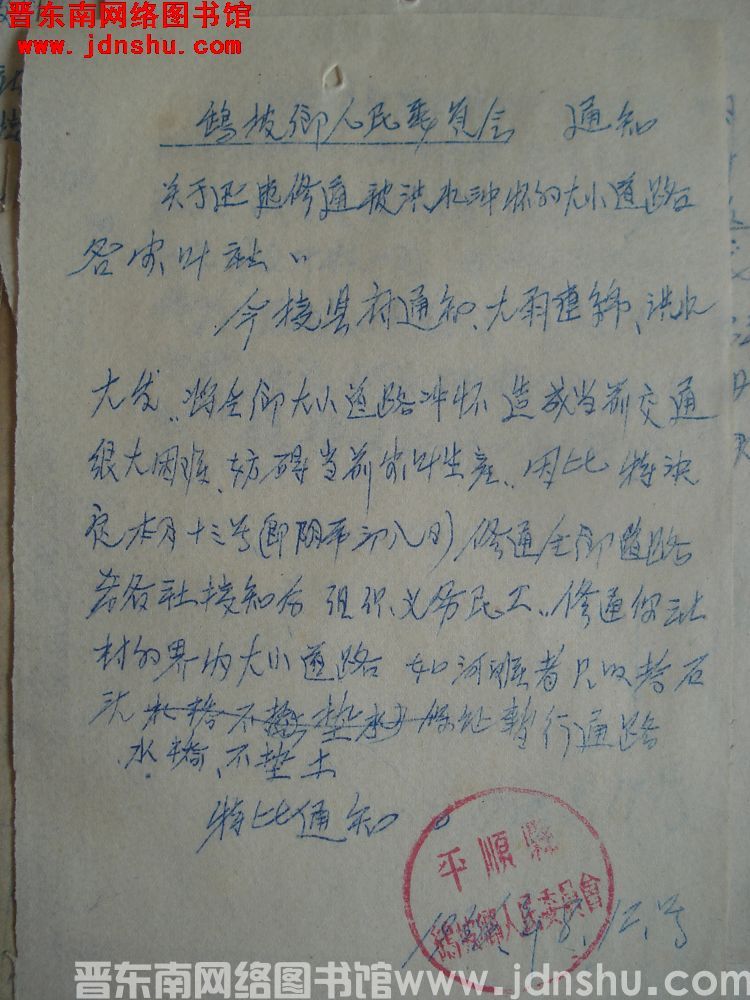 晋东南网络图书馆
www.jdnshu.com
人民委員会 通知
关于迅速修通被洪水冲怀的大小道路
各农叶社:
今接县府通知、大雨連綿、洪水
大发、将全鄉大小道路冲怀 造成当前交通
很大困难、妨碍当前农叶生产、因此 特决
定本月十三号(即阴历初八日) 修通全鄉道路
希各社接知后 组织义务民工、修通你社
村的界内大小道路 如河滩者只
水橋、不垫土 暫行通路
特此通知。
平順縣
鄉人民委員會
晋东南网络图书馆www.jdnshu.com